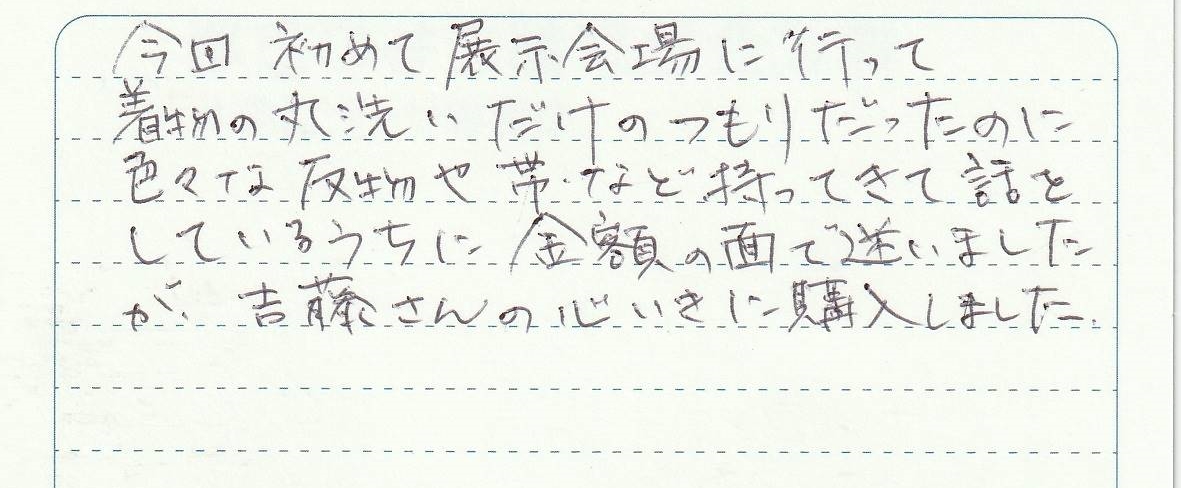 今回 初めて 展示会場に行って
着物の丸洗いだけのつもりだったのに
色々な反物や帯など持ってきて話を
しているうちに 金額の面で迷いました
が、吉藤さんの心いきに購入しました。